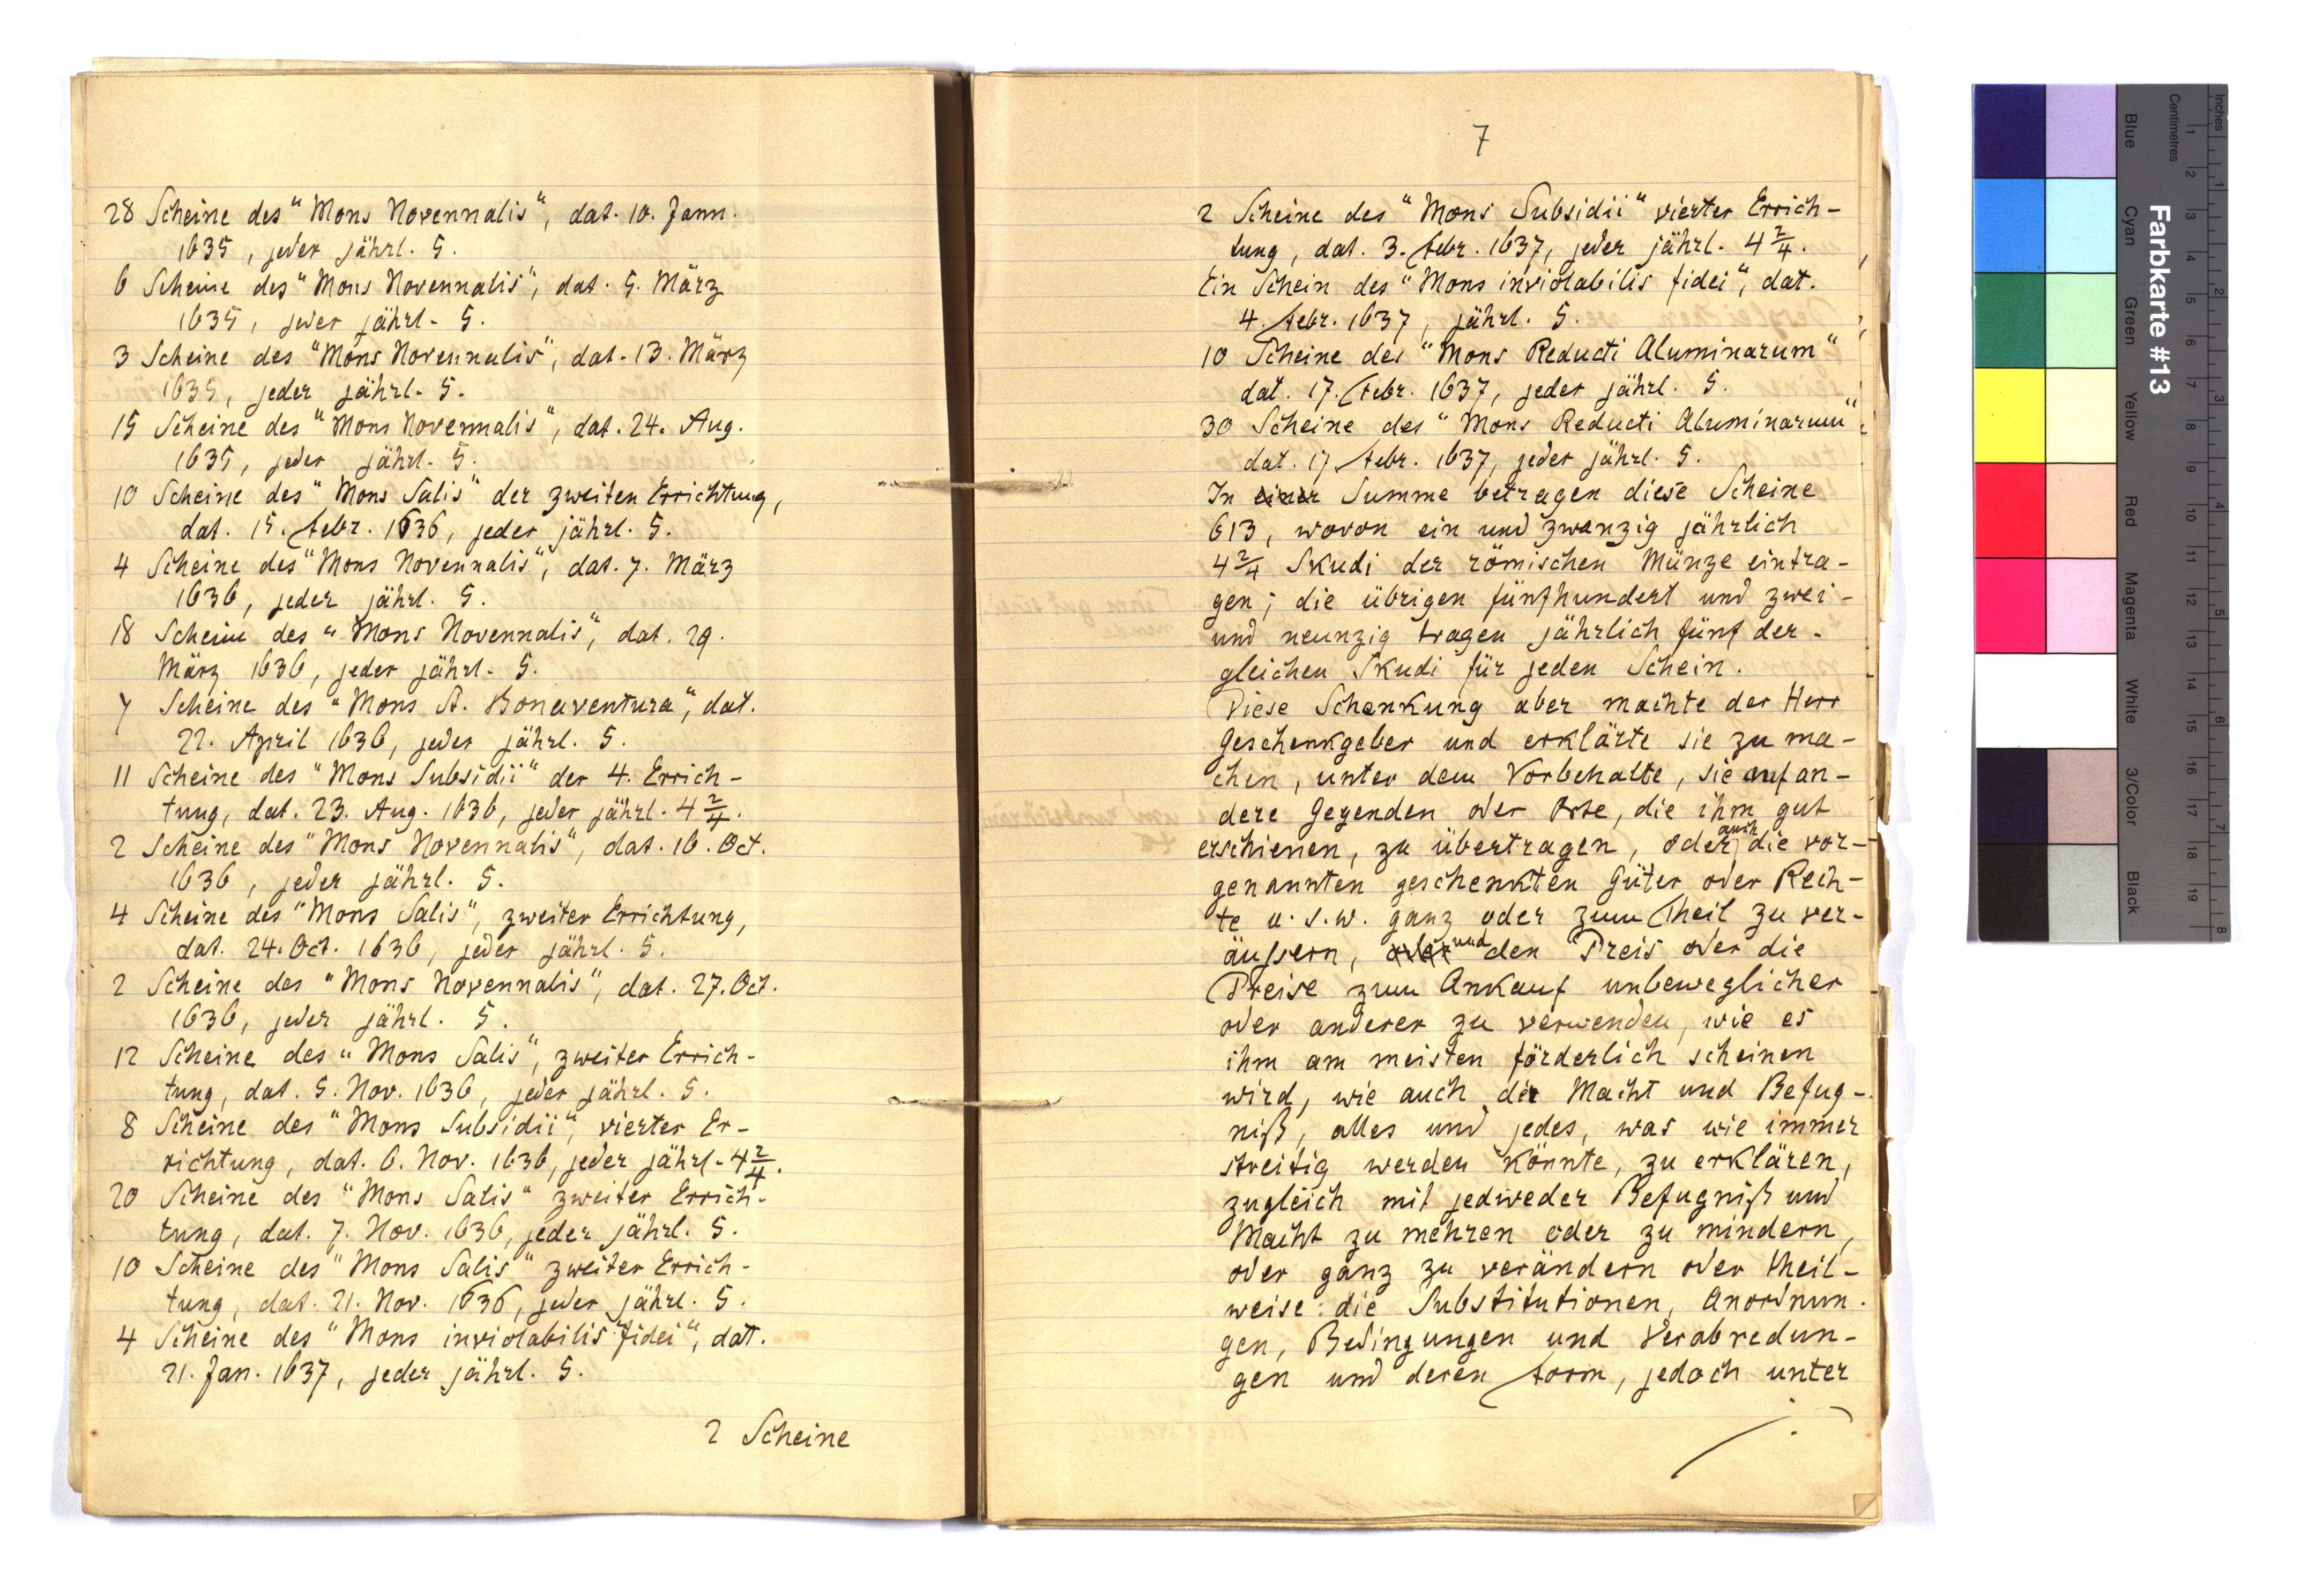 28 Scheine des "Mons Novennalis", dat. 10. Jann.
1635, jeder jährl. 5.
6 Scheine des "Mons Novennalis", dat. 5. März
1635, jeder jährl. 5.
3 Scheine des "Mons Novennalis", dat. 13. März
1635, jeder jährl. 5.
15 Scheine des "Mons Novennalis", dat. 24. Aug.
1635, jeder jährl. 5.
10 Scheine des "Mons Salis" der zweiten Errichtung,
dat. 15. Febr. 1636, jeder jährl. 5.
4 Scheine des "Mons Novennalis", dat. 7. März
1636, jeder jährl. 5.
18 Scheine des "Mons Novennalis", dat. 29.
März 1636, jeder jährl. 5.
7 Scheine des "Mons St. Bonaventura", dat.
22. April 1636, jeder jährl. 5.
11 Scheine des "Mons Subsidii" der 4. Errich-
tung, dat. 23. Aug. 1636, jeder jährl. 4 2/4.
2 Scheine des "Mons Novennalis", dat. 16. Oct.
1636, jeder jährl. 5.
4 Scheine des "Mons Salis", zweiter Errichtung,
dat. 24. Oct. 1636, jeder jährl. 5.
2 Scheine des "Mons Novennalis", dat. 27. Oct.
1636, jeder jährl. 5.
12 Scheine des "Mons Salis", zweiter Errich-
tung, dat. 5. Nov. 1636, jeder jährl. 5.
8 Scheine des "Mons Subsidii", vierter Er-
richtung, dat. 6. Nov. 1636, jeder jährl. 4 2/4.
20 Scheine des "Mons Salis" zweiter Errich-
tung, dat. 7. Nov. 1636, jeder jährl. 5.
10 Scheine des "Mons Salis" zweiter Errich-
tung, dat. 21. Nov. 1636, jeder jährl. 5.
4 Scheine des "Mons inviolabilis fidei", dat.
21. Jan. 1637, jeder jährl. 5.
2 Scheine
7
2 Scheine des "Mons Subsidii" vierter Errich-
tung, dat. 3. Febr. 1637, jeder jährl. 4 2/4.
Ein Schein des "Mons inviolabilis fidei", dat.
4. Febr. 1637, jährl. 5.
10 Scheine des "Mons Reducti Aluminarum"
dat. 17. Febr. 1637, jeder jährl. 5.
30 Scheine des "Mons Reducti Aluminarum"
dat. 17. Febr. 1637, jeder jährl. 5.
In einer Summe betragen diese Scheine
613, wovon ein und zwanzig jährlich
4 2/4 Skudi der römischen Münze eintra-
gen; die übrigen fünfhundert und zwei-
und neunzig tragen jährlich fünf der-
gleichen Skudi für jeden Schein.
Diese Schenkung aber machte der Herr
Geschenkgeber und erklärte sie zu ma-
chen, unter dem Vorbehalte, sie auf an-
dere Gegenden oder Orte, die ihm gut
erschienen, zu übertragen, oder auch die vor-
genannten geschenkten Güter oder Rech-
te u.s.w. ganz oder zum Theil zu ver-
äußern, oder und den Preis oder die
Preise zum Ankauf unbeweglicher
oder anderer zu verwenden, wie es
ihm am meisten förderlich scheinen
wird, wie auch der Macht und Befug-
niß, alles und jedes, was wie immer
streitig werden könnte, zu erklären,
zugleich mit jedweder Befugniß und
Macht zu mehren oder zu mindern,
oder ganz zu verändern oder theil-
weise: die Substitutionen, Anordnun-
gen, Bedingungen und Verabredun-
gen und deren Form, jedoch unter
Farbkarte #13
Inches 1 2 3 4 5 6 7 8
Centimetres 1 2 3 4 5 6 7 8 9 10 11 12 13 14 15 16 17 18 19
Blue Cyan Green Yellow Red Magenta White 3/Color Black